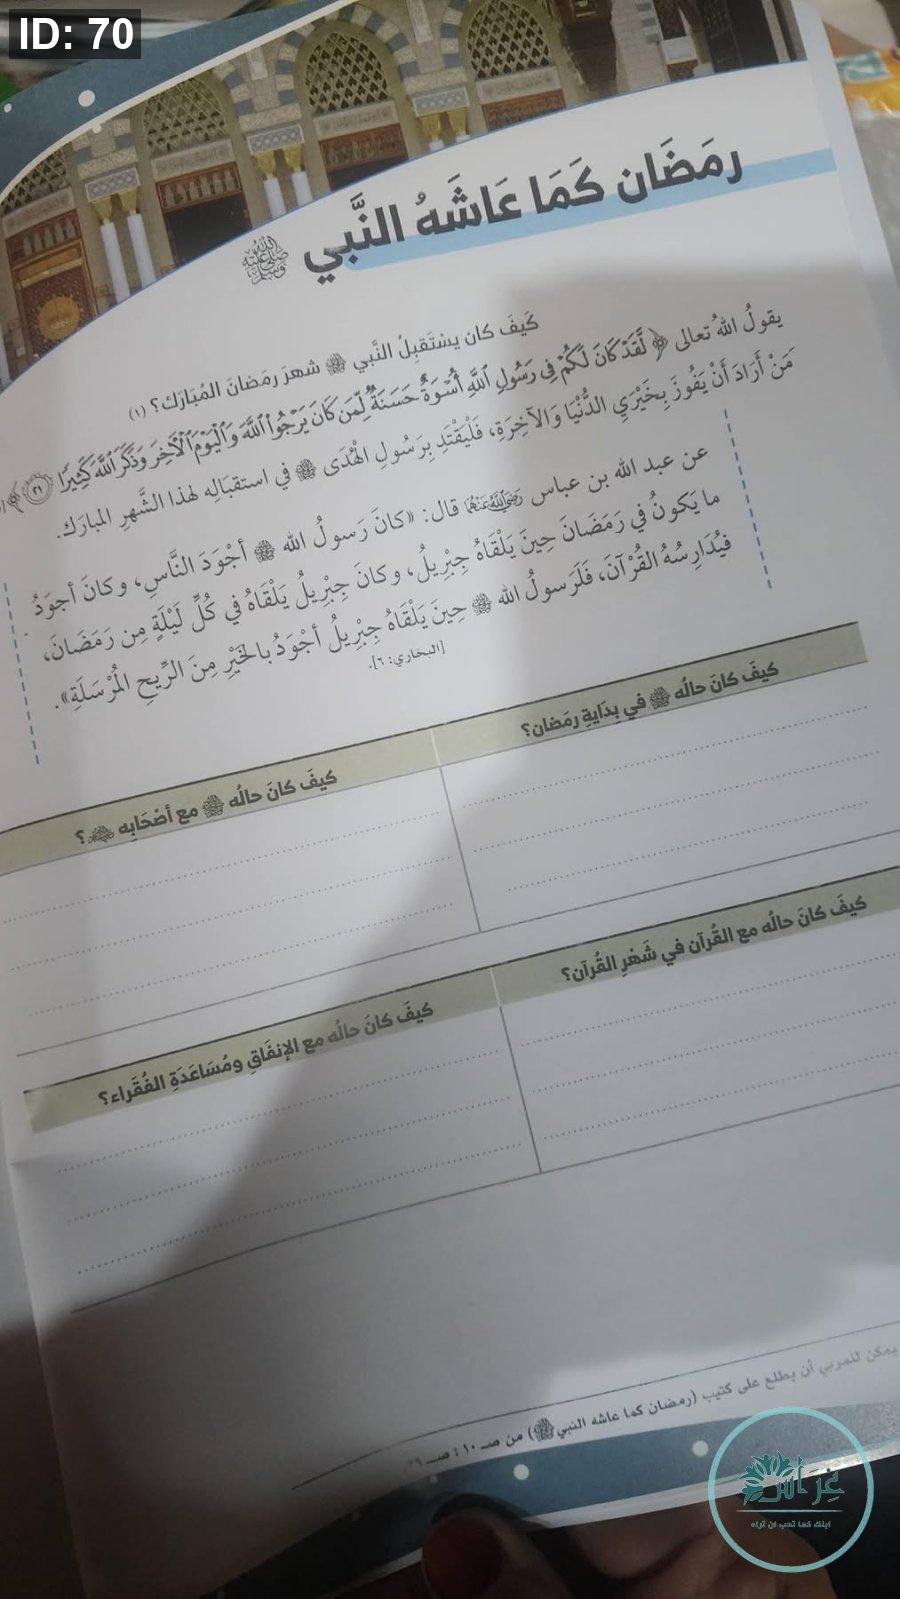 ID: 70
رمَضَان كَمَا عَاشَهُ النَّبي ﷺ
كَيفَ كان يسْتَقبِلُ النَّبي ﷺ شهرَ رمَضانَ المُبَارَك؟ (١)
يقولُ اللهُ تعالى ﴿ لَّقَدْ كَانَ لَكُمْ فِي رَسُولِ ٱللَّهِ أُسْوَةٌ حَسَنَةٌ لِّمَن كَانَ يَرْجُوا۟ ٱللَّهَ وَٱلْيَوْمَ ٱلْـَٔاخِرَ وَذَكَرَ ٱللَّهَ كَثِيرًا ٢١ ﴾
مَنْ أَرَادَ أَنْ يَفُوزَ بِخَيْرَيِ الدُّنْيَا وَالآخِرَةِ، فَلْيَقْتَدِ بِرَسُولِ الْهُدَى ﷺ في استقبَالِه لهذا الشَّهرِ المبارَك.
عن عبد الله بن عباس رَضِيَ اللَّهُ عَنْهُمَا قال: «كانَ رَسولُ الله ﷺ أجْوَدَ النَّاسِ، وكانَ أجوَدُ
ما يَكونُ في رَمَضَانَ حِينَ يَلْقَاهُ جِبْرِيلُ، وكانَ جِبْرِيلُ يَلْقَاهُ في كُلِّ لَيْلَةٍ مِن رَمَضَانَ،
فيُدَارِسُهُ القُرْآنَ، فَلَرَسولُ الله ﷺ حِينَ يَلْقَاهُ جِبْرِيلُ أجْوَدُ بالخَيْرِ مِنَ الرِّيحِ المُرْسَلَةِ».
[البخاري: ٦].
كيفَ كانَ حالُه ﷺ في بِدَايةِ رمَضان؟
كيفَ كانَ حالُه ﷺ مع أصْحَابِه ؟
كيفَ كانَ حالُه مع القُرآن في شَهْرِ القُرآن؟
كيفَ كانَ حالُه مع الإنفَاقِ ومُسَاعَدَةِ الفُقَراء؟
يمكن للمربي أن يطلع على كتيب (رمضان كما عاشه النبي ﷺ) من صـ ١٠ : صـ
غِرَاس
ابنك كما تحب ان تراه